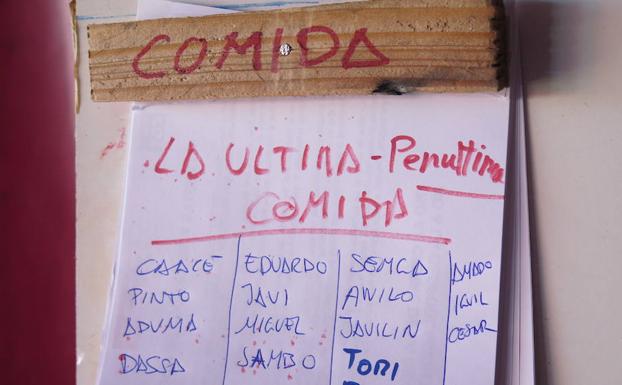 COMIDA
LA ULTIMA - Penultima
COMIDA
CAACE EDUARDO SEMGA AMADO
PINTO JAVI AWILO IGUIL
ADUMA MIGUEL JAVILIN CESAR
DASSA SAMBO TORI